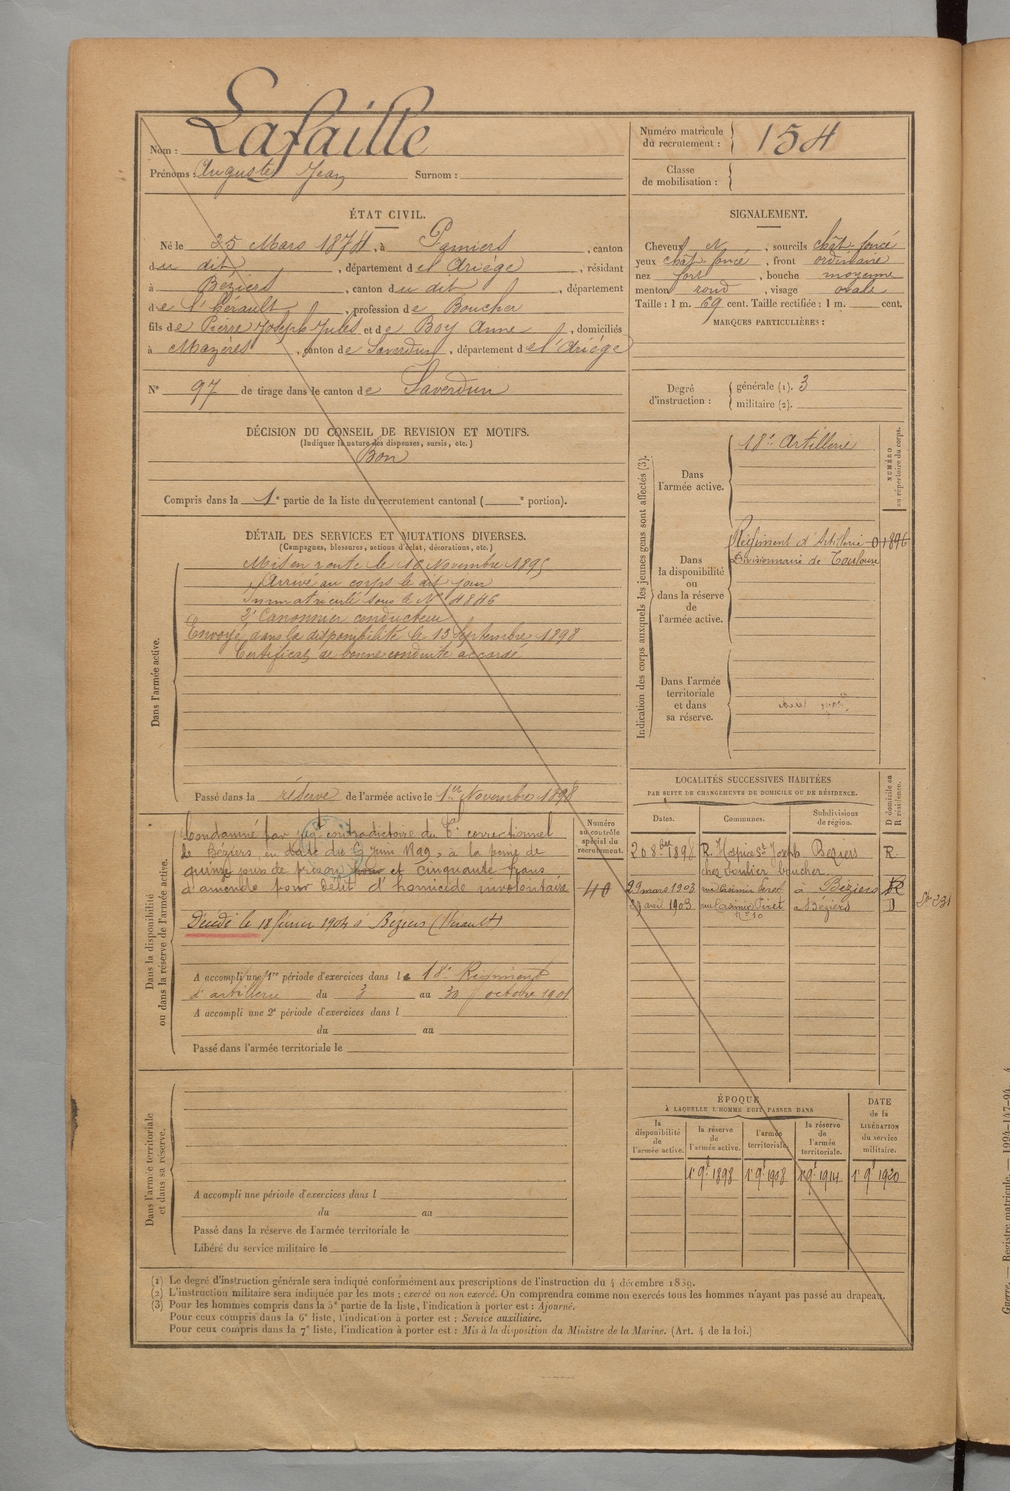 Nom : Lafaille
Prénoms : Auguste Jean Surnom :
Numéro matricule du recrutement : 154
Classe de mobilisation :
ÉTAT CIVIL.
Né le 25 Mars 1874, à Pamiers, canton
du dit, département de l'Ariège, résidant
à Béziers, canton du dit, département
de l'Hérault, profession de Boucher
fils de Pierre Joseph Jules et de Boy Anne, domiciliés
à Mazères, canton de Saverdun, département de l'Ariège
N° 97 de tirage dans le canton de Saverdun
SIGNALEMENT.
Cheveux N, sourcils chât. foncé
yeux chât. foncé, front ordinaire
nez fort, bouche moyenne
menton rond, visage ovale
Taille : 1 m. 69 cent. Taille rectifiée : 1 m. cent.
MARQUES PARTICULIÈRES :
Degré d'instruction : générale (1). 3
militaire (2).
DÉCISION DU CONSEIL DE REVISION ET MOTIFS.
(Indiquer la nature des dispenses, sursis, etc.)
Bon
Compris dans la 1e partie de la liste du recrutement cantonal ( e portion).
DÉTAIL DES SERVICES ET MUTATIONS DIVERSES.
(Campagnes, blessures, actions d'éclat, décorations, etc.)
Dans l'armée active.
Mis en route le 16 Novembre 1895
Arrivé au corps le dit jour
Immatriculé sous le N° 4846
2e Canonnier conducteur
Envoyé dans la disponibilité le 15 Septembre 1898
Certificat de bonne conduite accordé
Passé dans la réserve de l'armée active le 1er Novembre 1898
Indication des corps auxquels les jeunes gens sont affectés (3).
NUMÉRO au répertoire du corps.
Dans l'armée active.
18e Artillerie
Dans la disponibilité ou dans la réserve de l'armée active.
Régiment d'Artillerie 01896
Divisionnaire de Toulouse
Dans l'armée territoriale et dans sa réserve.
Dans la disponibilité ou dans la réserve de l'armée active.
Condamné par jugt contradictoire du T. correctionnel
de Béziers, en date du 9 Juin 1899, à la peine de
quinze jours de prison et cinquante francs
d'amende pour délit d'homicide involontaire
Décédé le 18 février 1904 à Béziers (Hérault)
Numéro au contrôle spécial du recrutement.
40
A accompli une 1re période d'exercices dans le 18e Régiment
d'artillerie du 3 au 30 octobre 1901
A accompli une 2e période d'exercices dans l
du au
Passé dans l'armée territoriale le
LOCALITÉS SUCCESSIVES HABITÉES
PAR SUITE DE CHANGEMENTS DE DOMICILE OU DE RÉSIDENCE.
Dates. Communes. Subdivisions de région. D domicile ou R résidence.
20 8bre 1898 R. Hospice St Joseph Beziers R.
chez Soulier boucher
29 mars 1903 rue Casimir Péret à Béziers R
27 avril 1903 rue Casimir Péret à Béziers D
n° 10
Dans l'armée territoriale et dans sa réserve.
A accompli une période d'exercices dans l
du au
Passé dans la réserve de l'armée territoriale le
Libéré du service militaire le
ÉPOQUE
À LAQUELLE L'HOMME DOIT PASSER DANS
la disponibilité de l'armée active. la réserve de l'armée active. l'armée territoriale. la réserve de l'armée territoriale.
DATE de la LIBÉRATION du service militaire.
1er 9bre 1898 1er 9bre 1908 1er 9bre 1914 1er 9bre 1920
(1) Le degré d'instruction générale sera indiqué conformément aux prescriptions de l'instruction du 4 décembre 1889.
(2) L'instruction militaire sera indiquée par les mots : exercé ou non exercé. On comprendra comme non exercés tous les hommes n'ayant pas passé au drapeau.
(3) Pour les hommes compris dans la 5e partie de la liste, l'indication à porter est : Ajourné.
Pour ceux compris dans la 6e liste, l'indication à porter est : Service auxiliaire.
Pour ceux compris dans la 7e liste, l'indication à porter est : Mis à la disposition du Ministre de la Marine. (Art. 4 de la loi.)
Guerre. — Registre matricule. — 1994-147-94. 4